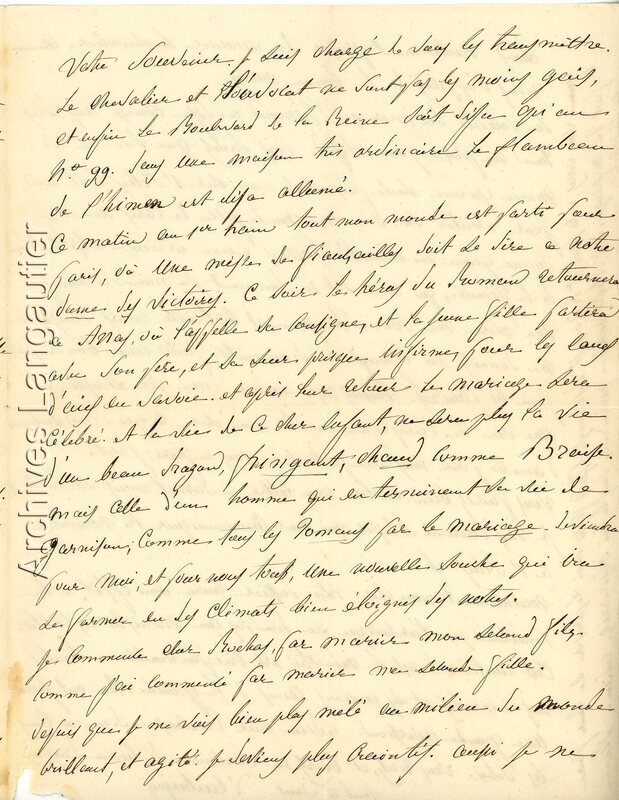 Votre Souvenir. je suis chargé de vous les transmettre.
Le Chevalier et l'avocat ne sont pas les moins gais,
et enfin Le Boulevard de la Reine sait dija qu'au
n° 99. dans une maison très ordinaire Le flambeau
de l'himen est dija allumé.
Ce matin au 1er train tout mon monde est parti pour
Paris, où Une messe de fiançailles doit se dire a notre
dame des victoires. Ce soir le héros du Romand retournera
a Arras, où l'appelle sa consigne, et la jeune fille partira
avec son père, et sa sœur presque infirme, pour les eaux
d'aix en Savoie. et après leur retour Le mariage sera
célébré. Et la vie de ce cher enfant, ne sera plus la vie
d'un beau dragon, fringant, chaud comme Braise.
mais celle d'un homme qui en terminant sa vie de
garnison, comme tous les romans par le mariage deviendra
pour moi, et pour nous tous, une nouvelle souche qui ira
se former en des climats bien éloignés des notres.
je commence cher Rochas, par marier mon second fils.
comme j'ai commencé par marier ma seconde fille.
depuis que je me vois bien plus mêlé au milieu du monde
brillant, et agité. je deviens plus craintif. aussi je ne
Archives Langautier